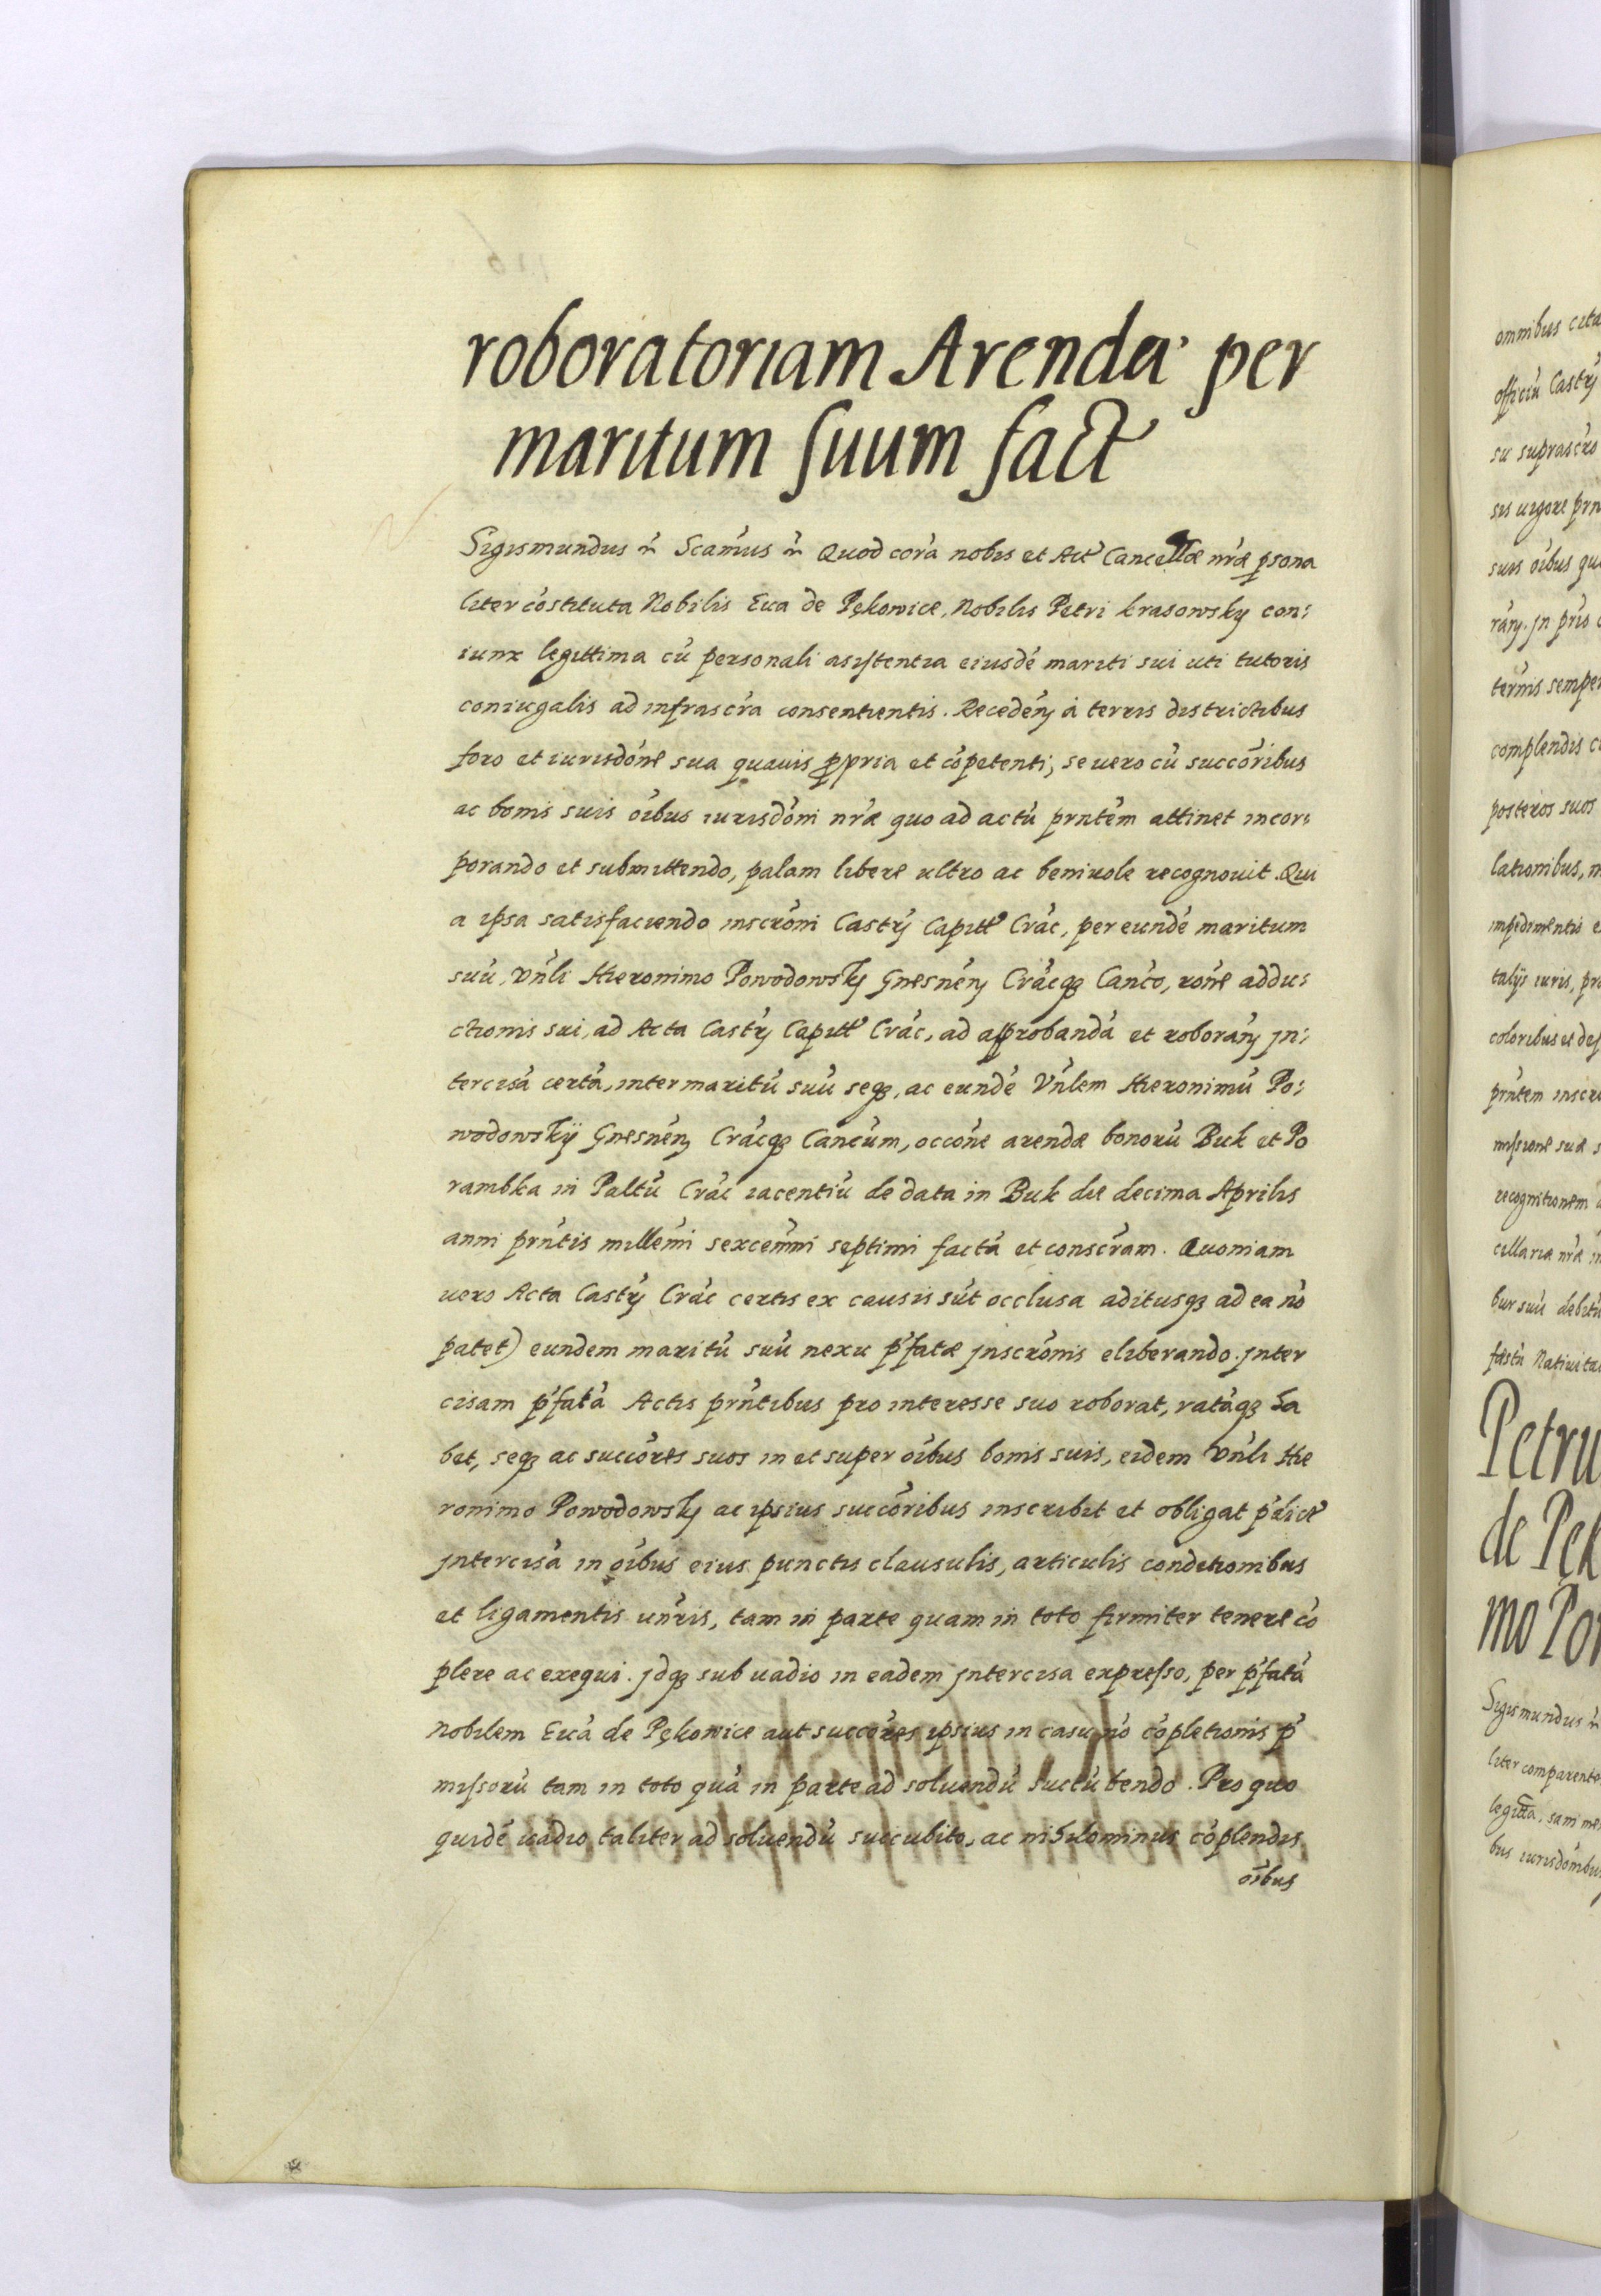 roboratoriam Arendæ per
maritum suum fact
Sigismundus r̃ Scam̃us r̃ Quod corã nobis et Act Cancellæ nr̃æ psona
liter cõstituta Nobilis Eua de Pękowice, Nobilis Petri Krasowsky con:
iunx legittima cũ personali asistentia eiusdẽ mariti sui uti tutoris
coniugalis ad infrascr̃a consentientis. Recedeñ à terris districtibus
foro et iurisdõne sua quauis propria et cõpetenti, se uero cũ succõribus
ac bonis suis õibus iurisdõni nr̃æ quo ad actũ prñtem attinet incor:
porando et submittendo, palam libere ultro ac beniuole recognouit. Qui
a ipsa satisfaciendo inscrõni Castr̃ Capitł Crãc, per eundẽ maritum
suũ, Vñli Hieronimo Powodowsky Gnesneñ Crãcqȝ Canco, rõne addu:
ctionis sui, ad Acta Castr̃ Capitł Crãc, ad approbandã et roborañ jn:
tercisã certã, inter maritũ suũ seqȝ, ac eundẽ Vñlem Hieronimũ Po:
wodowskÿ Gnesneñ Crãcqȝ Cancũm, occõne arendæ bonorũ Buk et Po
rambka in Paltũ Crãc iacentiũ de data in Buk die decima Aprilis
anni prñtis millẽmi sexceñmi septimi factã et conscr̃am. Quoniam
uero Acta Castr̃ Crãc certis ex causis sũt occlusa aditusqȝ ad ea nõ
patet) eundem maritũ suũ nexu p̃fatæ jnscrõnis eliberando. jnter
cisam p̃fatã Actis prñtibus pro interesse suo roborat, ratãqȝ ha
bet, seqȝ ac succõres suos in et super õibus bonis suis, eidem Vñli Hie
ronimo Powodowsky ac ipsius succõribus inscribit et obligat p̃dict
jntercisã in õibus eius punctis clausulis, articulis conditionibus
et ligamentis uñris, tam in parte quam in toto firmiter tenere cõ
plere ac exequi. jdqȝ sub uadio in eadem jntercisa expresso, per p̃fatã
Nobilem Euã de Pękowice aut succõres ipsius in casu nõ cõpletionis p̃
missorũ tam in toto quã in parte ad soluendũ succũbendo. Pro quo
quidẽ uadio taliter ad soluendũ succubito, ac nihilominus cõplendis
õibus
omnibus
officiũ Castr̃
su suprascr̃o
sis uigore
suis õibus
semper
complendis
posteros suos
lationibus,
impedimentis
talÿs iuris,
coloribus
prñtem
missione suæ
recognitionem
cellaria nr̃æ
bursuũ
Petru
de Pęk
mo Po
Sigismundus r̃
liter comparente